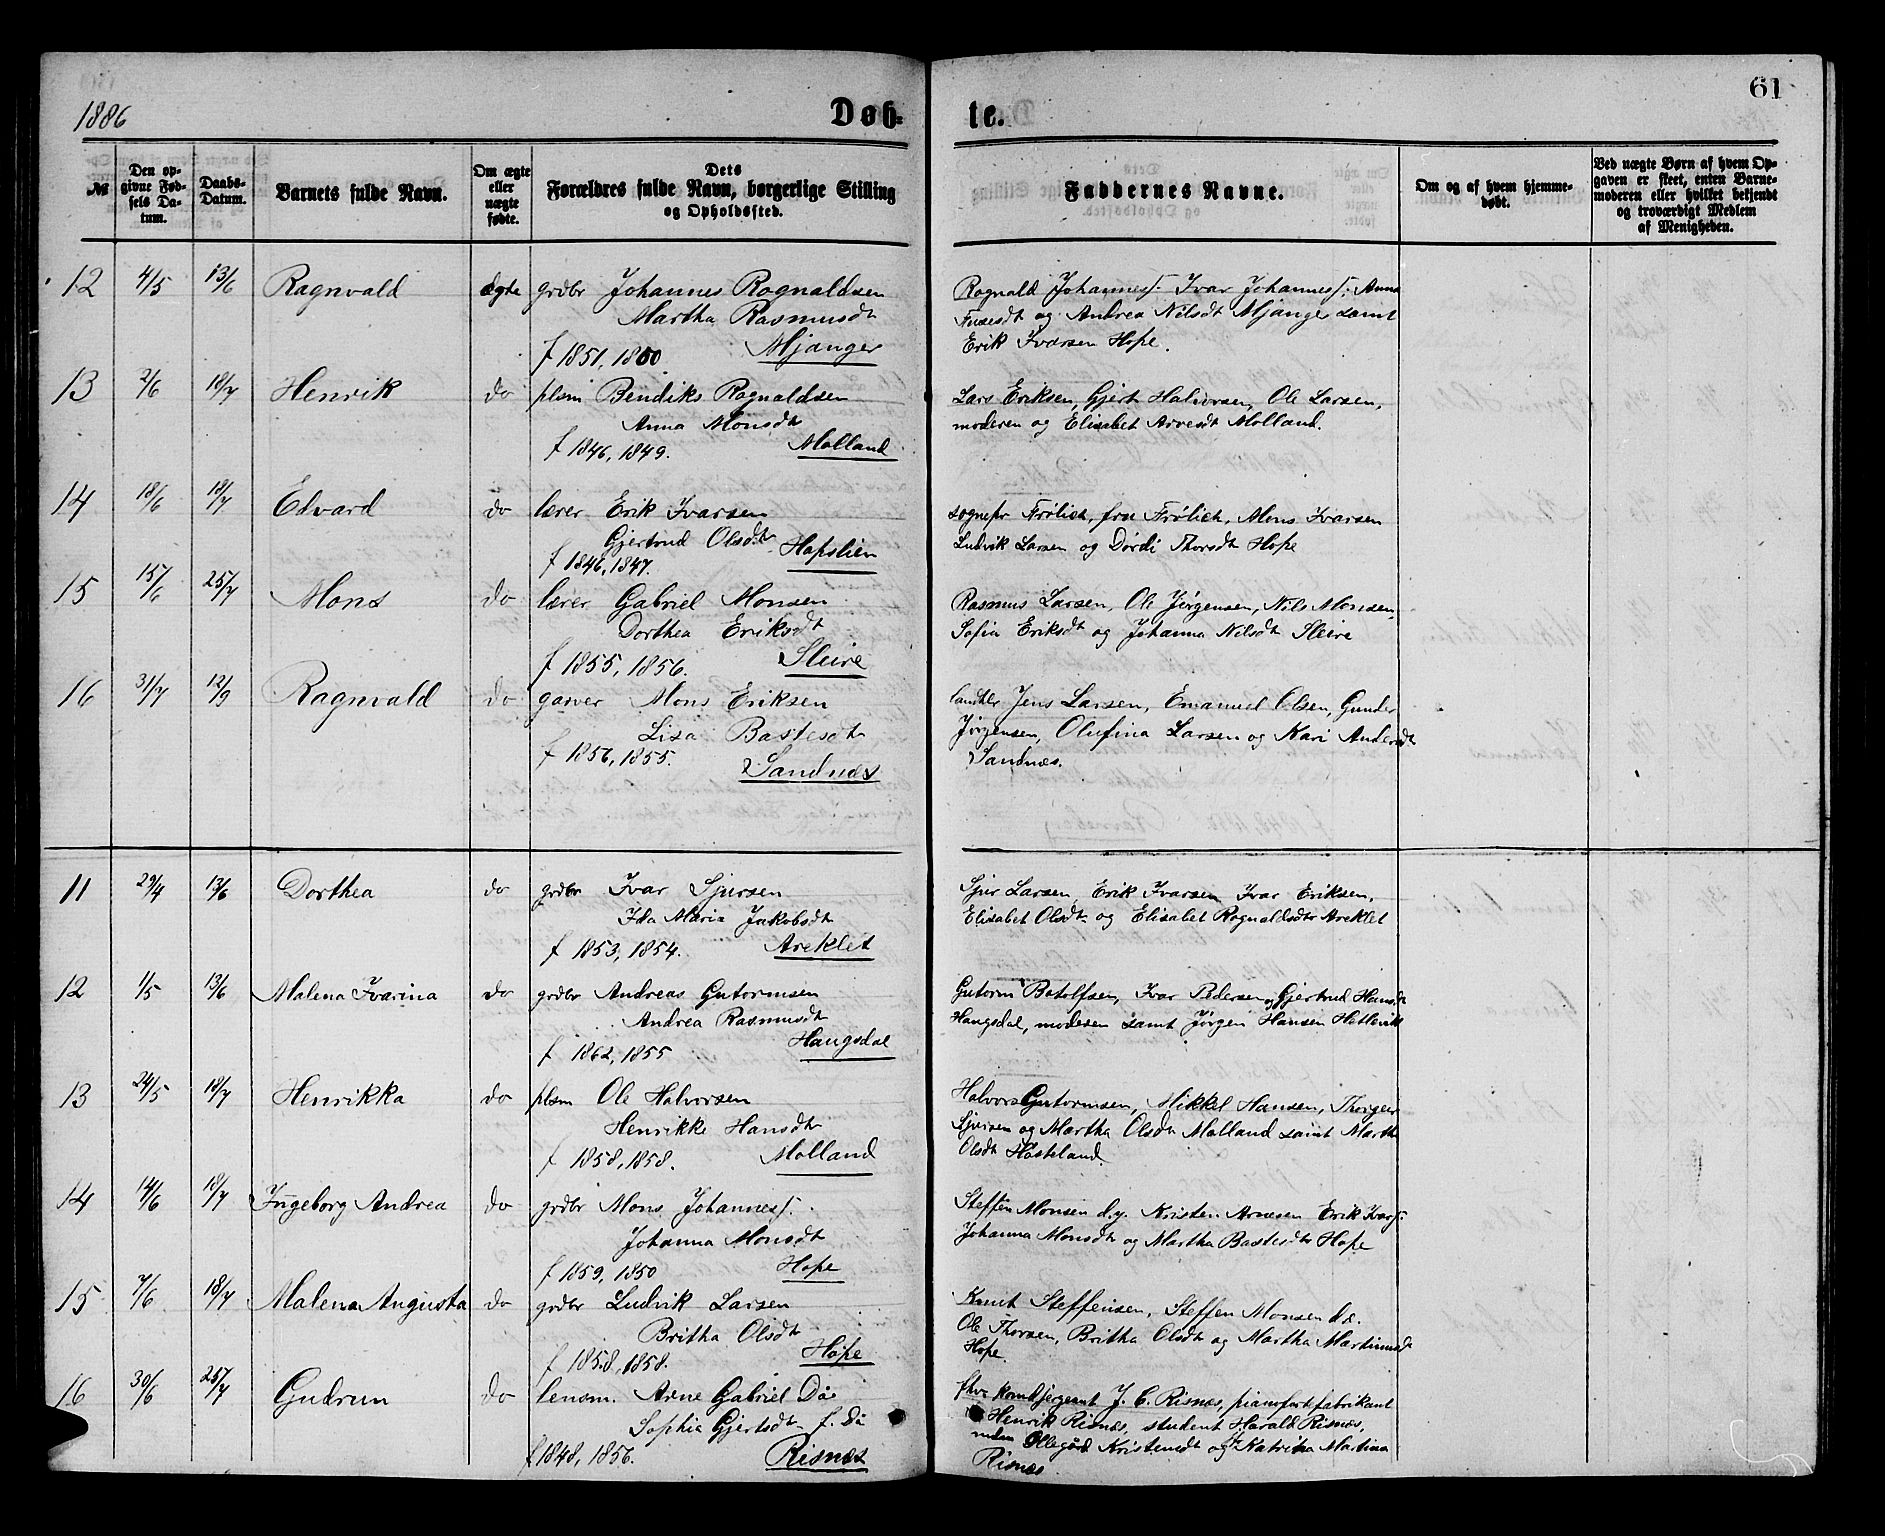 1886
Døb-
te.
61
№
Den op-
givne Fød-
sels Da-
tum.
Daabs-
Datum.
Barnets fulde Navn.
Om ægte
eller
uægte
født.
Dets
Forældres fulde Navn, borgerlige Stilling
og Opholdssted.
Faddernes Navne.
Om og af hvem hjemme-
døbt.
Ved uægte Børn af hvem Op-
gaven er skeet, enten Barne-
moderen eller hvilket bekjendt
og troværdigt Medlem
af Menigheden.
12 4/5 13/6 Ragnvald ægte grdbr Johannes Rognaldsen
Martha Rasmusdt
f 1851, 1860. Mjanger
Rognald Johannes/. Ivar Johannes/. Anna
og Andrea Nilsdt Mjanger samt
Erik Ivarsen Hope.
13 2/6 18/7 Henrik do plsm Bendiks Rognaldsen
Anna Monsdt
f 1846, 1849. Molland
Lars Eriksen, Gjert Halvorsen, Ole Larsen,
moderen og Elisabet Arnesdt Molland.
14 18/6 18/7 Edvard do lærer Erik Ivarsen
Gjertrud Olsdt
f 1846, 1847. Hopslien
sognepr Frølich, fru Frølich, Mons Ivarsen
Ludvik Larsen og Dordi Thorsdt Hope
15 15/6 25/7 Mons do lærer Gabriel Monsen
Dorthea Eriksdt
f 1855, 1856. Sleire
Rasmus Larsen, Ole Jørgensen, Nils Monsen,
Sofia Eriksdt og Johanna Nilsdt Sleire
16 31/7 12/9 Ragnvald do garver Mons Eriksen
Lisa Bastesdt
f 1856, 1855. Sandnæs
landhl Jens Larsen, Emanuel Olsen, Gunder
Jørgensen, Olufina Larsen og Kari Andersdt
Sandnæs.
11 29/4 13/6 Dorthea do grdbr Ivar Sjursen
Ida Maria Jakobsdt
f 1853, 1854. Areklet
Sjur Larsen, Erik Ivarsen Ivar Eriksen,
Elisabet Olsdt og Elisabet Rognaldsdtr Areklet
12 1/5 13/6 Malena Ivarina do grdbr Andreas Gutormsen
Andrea Rasmusdt
f 1862, 1855 Haugsdal
Gutorm Botolfsen, Ivar Pedersen og Gjertrud Hansdt
Haugsdal, moderen samt Jørgen Hansen Hetlevik
13 24/5 18/7 Henrikka do plsm Ole Halvorsen
Henrikke Hansdt
f 1858, 1858. Molland
Halvor Gutormsen, Mikkel Hansen, Thorgeir
Sjursen og Martha Olsdt Molland samt Martha
Olsdt Hosteland.
14 14/6 18/7 Ingeborg Andrea do grdbr Mons Johannes/.
Johanna Monsdt
f 1859, 1850 Hope
Steffen Monsen d.y. Kristen Arnesen Erik Ivar/.
Johanna Monsdt og Martha Bastesdtr Hope
15 7/6 18/7 Malena Augusta do grdbr Ludvik Larsen
Britha Olsdt
f 1858, 1858. Hope
Knut Steffensen, Steffen Monsen d.æ.
Ole Thorsen, Britha Olsdt og Martha Martinusdt
Hope.
16 30/6 25/7 Gudrun do lensm. Arne Gabriel Døe
Sophia Gjertsdt f. Dø
f 1848, 1856. Risnæs
fhv. Komdsergeant J. C. Risnæs, pianofortefabrikant
Henrik Risnæs, student Harald Risnæs,
Ollegård Kristensdt og Katrina Martina
Risnæs